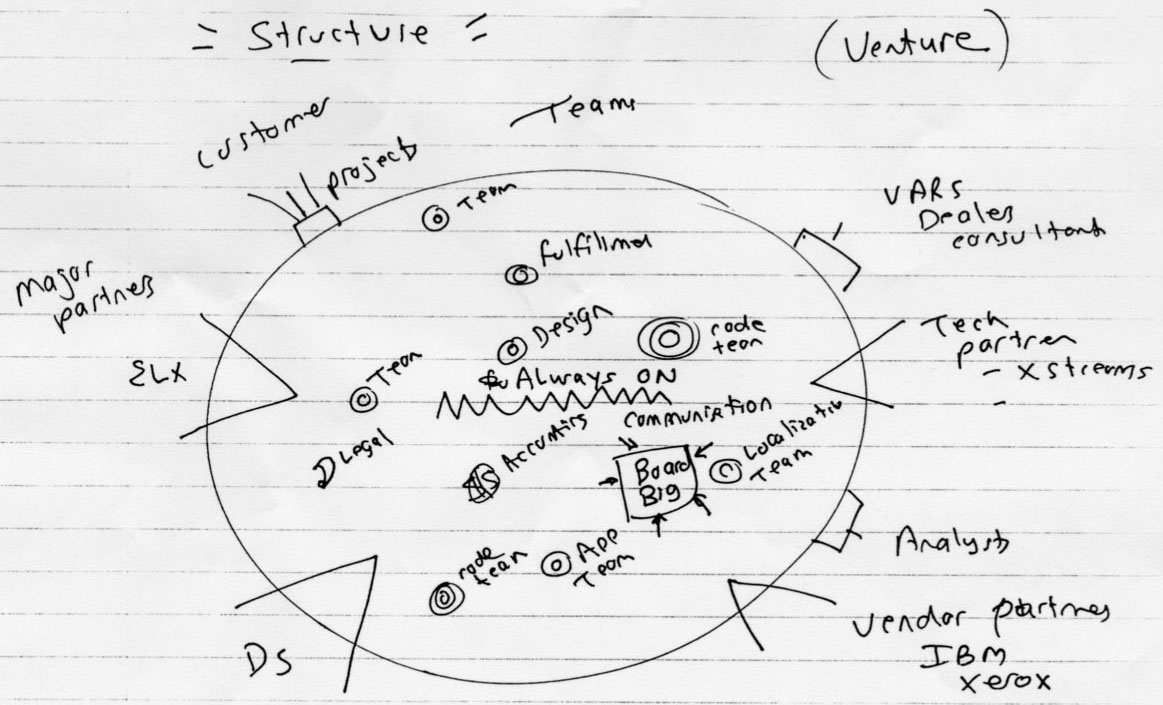 = Structure =
(Venture)
Teams
Customer
projects
Team
VARS
Deales
consultant
fulfillmet
major
partners
Design
code
team
Tech
partner
- Xstreams
ELX
Team
$ Always ON
communication
Legal
Accounting
Board
Big
Localization
Team
Analysts
code
team
App
Team
DS
Vendor partners
IBM
Xerox